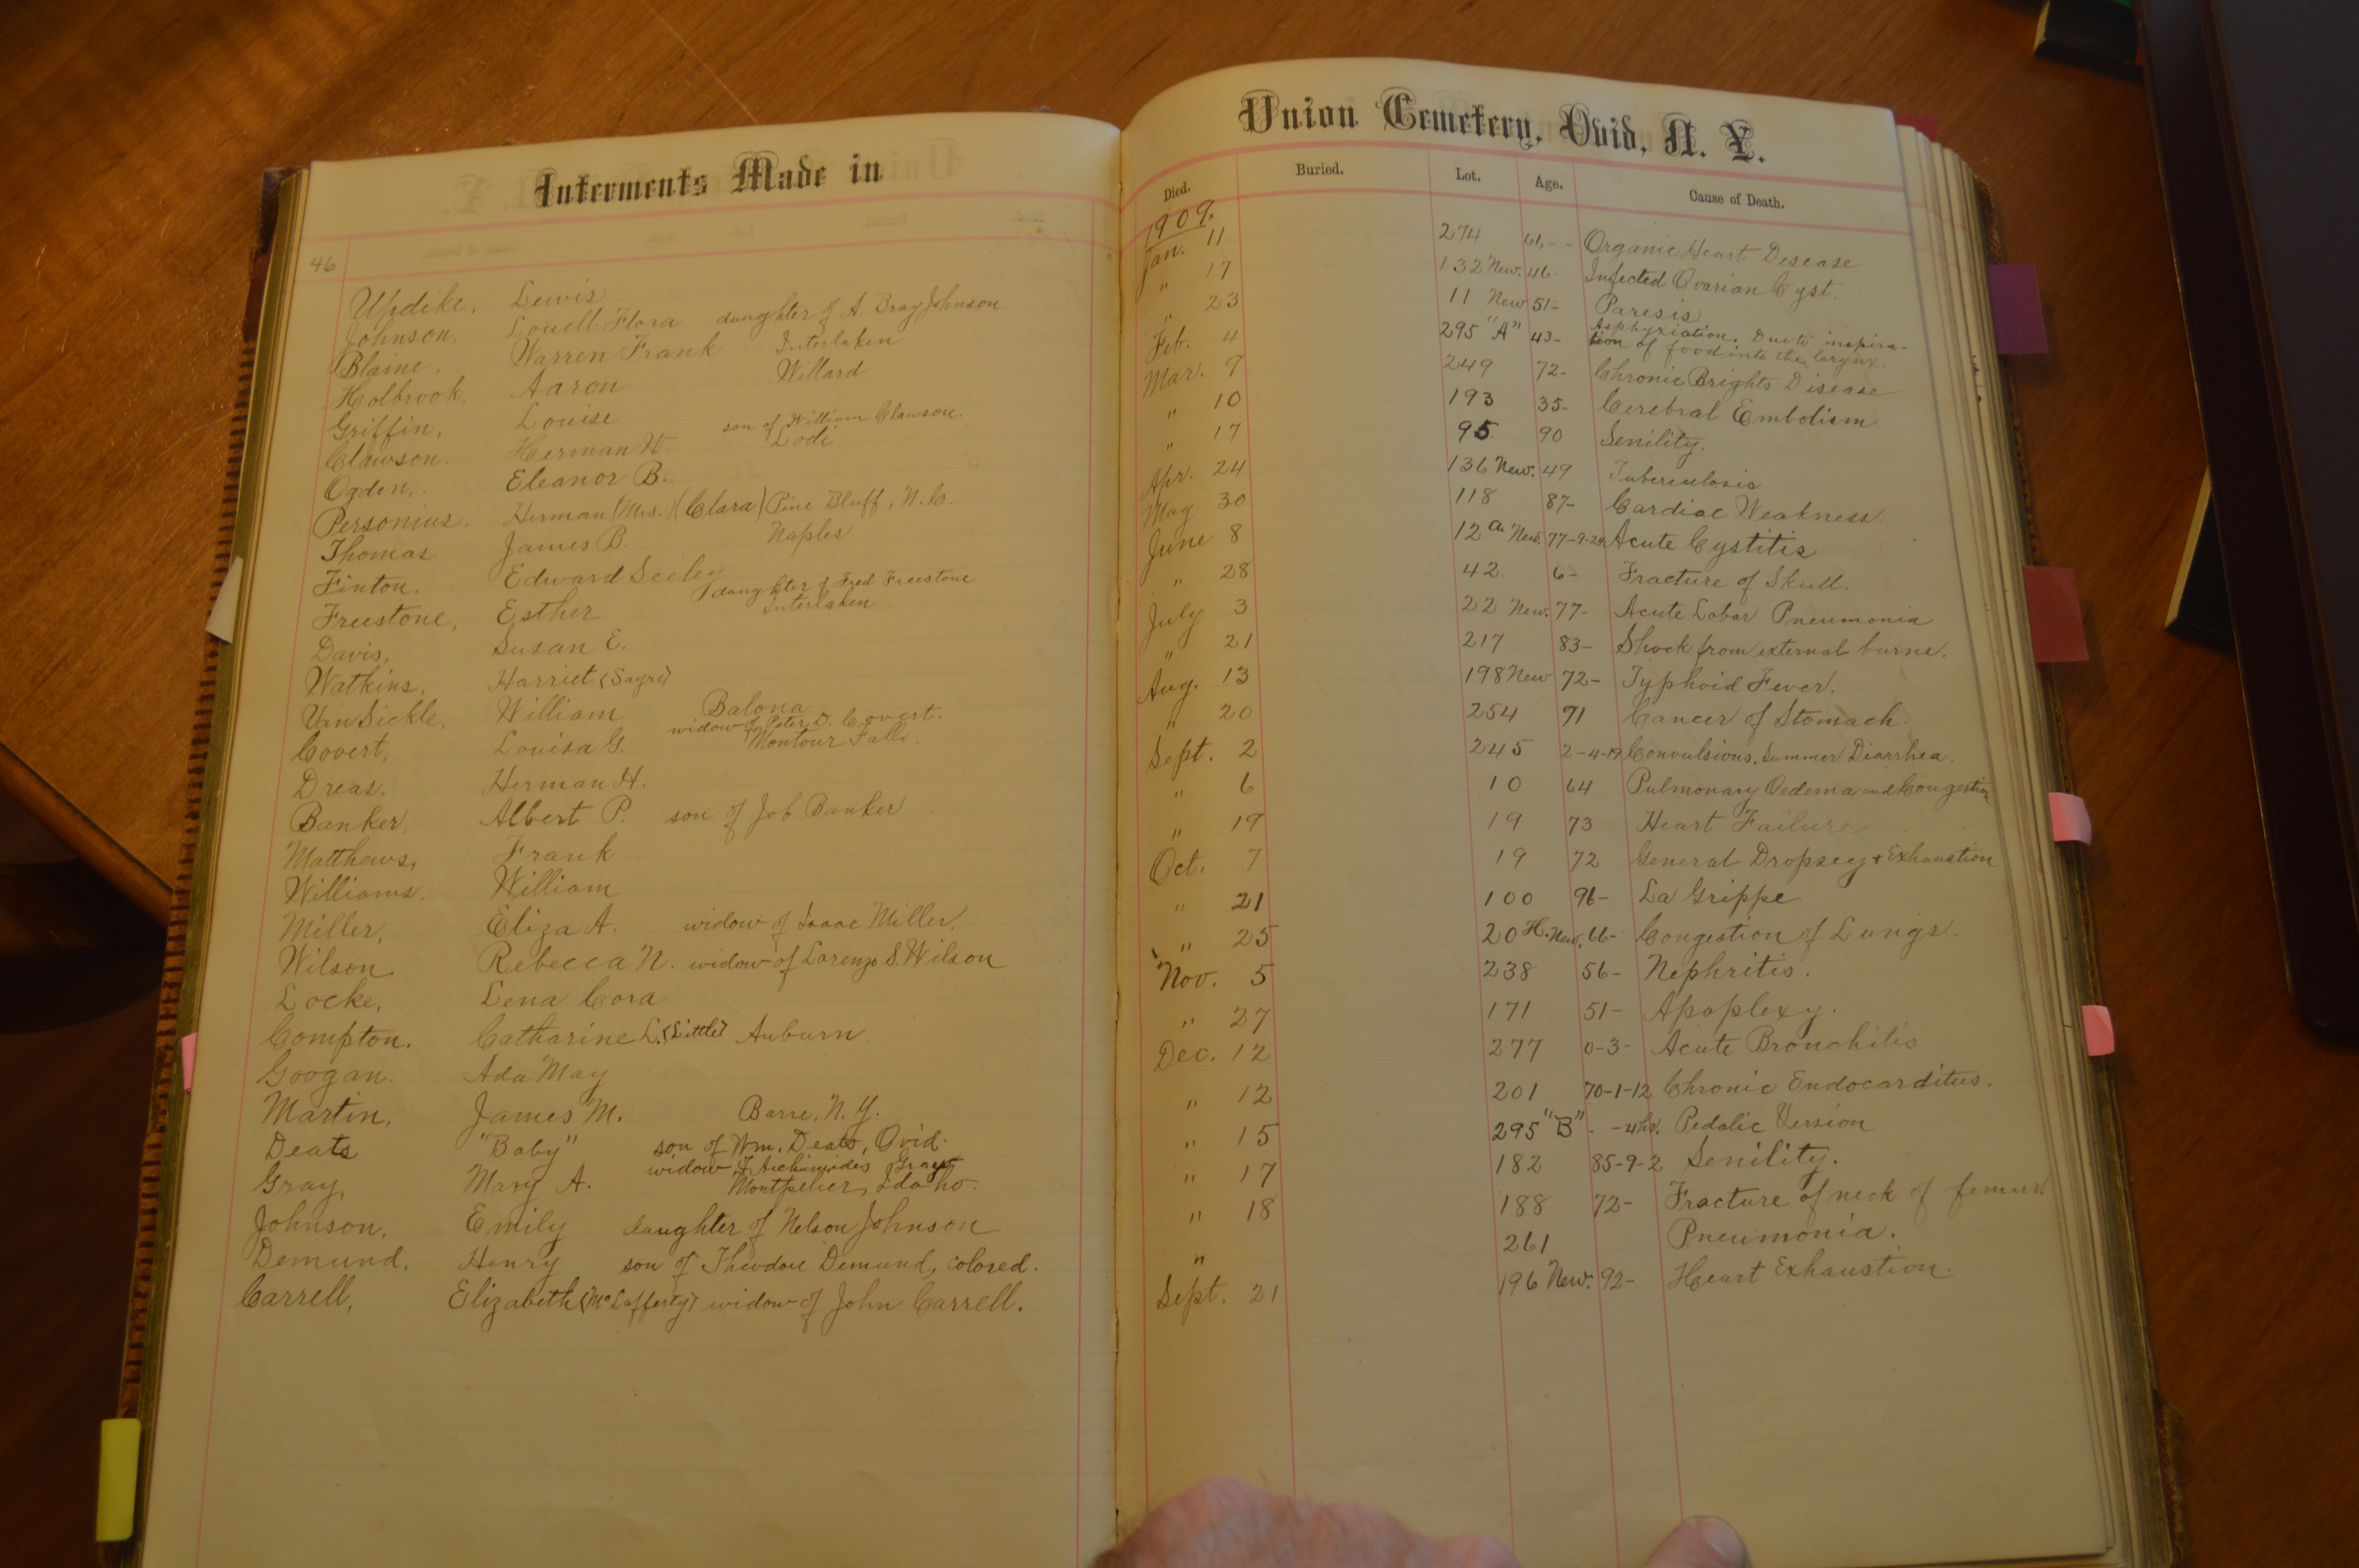 Interments Made in
46
Updike, Lewis
Johnson, Louell Flora daughter of A. Bray Johnson
Blaine, Warren Frank Interlaken
Holbrook, Aaron Willard
Griffin, Louise
Clawson. Herman W. son of William Clawson.
Lodi
Ogden, Eleanor B.
Personius. Herman (Mrs.) (Clara) Pine Bluff, N.C.
Thomas James B. Naples
Finton, Edward Seeley
Freestone, Esther daughter of Fred Freestone
Interlaken
Davis, Susan E.
Watkins, Harriet (Sayre)
VanSickle, William Balona
Covert, Louisa G. widow of Peter D. Covert.
Montour Falls.
Dreas. Herman H.
Banker, Albert P. son of Job Banker
Matthews, Frank
Williams. William
Miller, Eliza A. widow of Isaac Miller.
Wilson Rebecca N. widow of Lorenzo S. Wilson
Locke, Lena Cora
Compton. Catharine L. (Little) Auburn
Googan. Ada May
Martin, James M. Barre, N.Y.
Deats "Baby" son of Wm. Deats, Ovid.
Gray, Mary A. widow of Archimedes Gray
Montpelier, Idaho.
Johnson, Emily daughter of Nelson Johnson
Demund, Henry son of Theodore Demund, colored.
Carrell, Elizabeth (McLafferty) widow of John Carrell.
Union Cemetery, Ovid, N. Y.
Died. Buried. Lot. Age. Cause of Death.
1909.
Jan. 11 274 61,-- Organic Heart Desease
" 17 132 New. 46. Infected Ovarian Cyst.
" 23 11 New 51- Paresis
Feb. 4 295 "A" 43- Asphyxiation. Due to inspira-
tion of food into the larynx.
Mar. 9 249 72- Chronic Brights Disease
" 10 193 35- Cerebral Embolism
" 17 95 90 Senility.
Apr. 24 136 New. 49 Tuberculosis
May 30 118 87- Cardiac Weakness
June 8 12 a New. 77-9-24 Acute Cystitis
" 28 42 6- Fracture of Skull.
July 3 22 New. 77- Acute Lobar Pneumonia
" 21 217 83- Shock from external burns.
Aug. 13 198 New 72- Typhoid Fever.
" 20 254 71 Cancer of Stomach.
Sept. 2 245 2-4-19 Convulsions. Summer Diarrhea.
" 6 10 64 Pulmonary Oedema and Congestion
" 19 19 73 Heart Failure
Oct. 7 19 72 General Dropsey + Exhaustion
" 21 100 96- La Grippe
" 25 20 H. New. 66- Congestion of Lungs.
Nov. 5 238 56- Nephritis.
" 27 171 51- Apoplexy.
Dec. 12 277 0-3- Acute Bronchitis
" 12 201 70-1-12 Chronic Endocarditus.
" 15 295 "B" - -4hr. Pedalic Version
" 17 182 85-9-2 Senility.
" 18 188 72- Fracture of neck of femur
" 261 Pneumonia.
Sept. 21 196 New. 92- Heart Exhaustion.